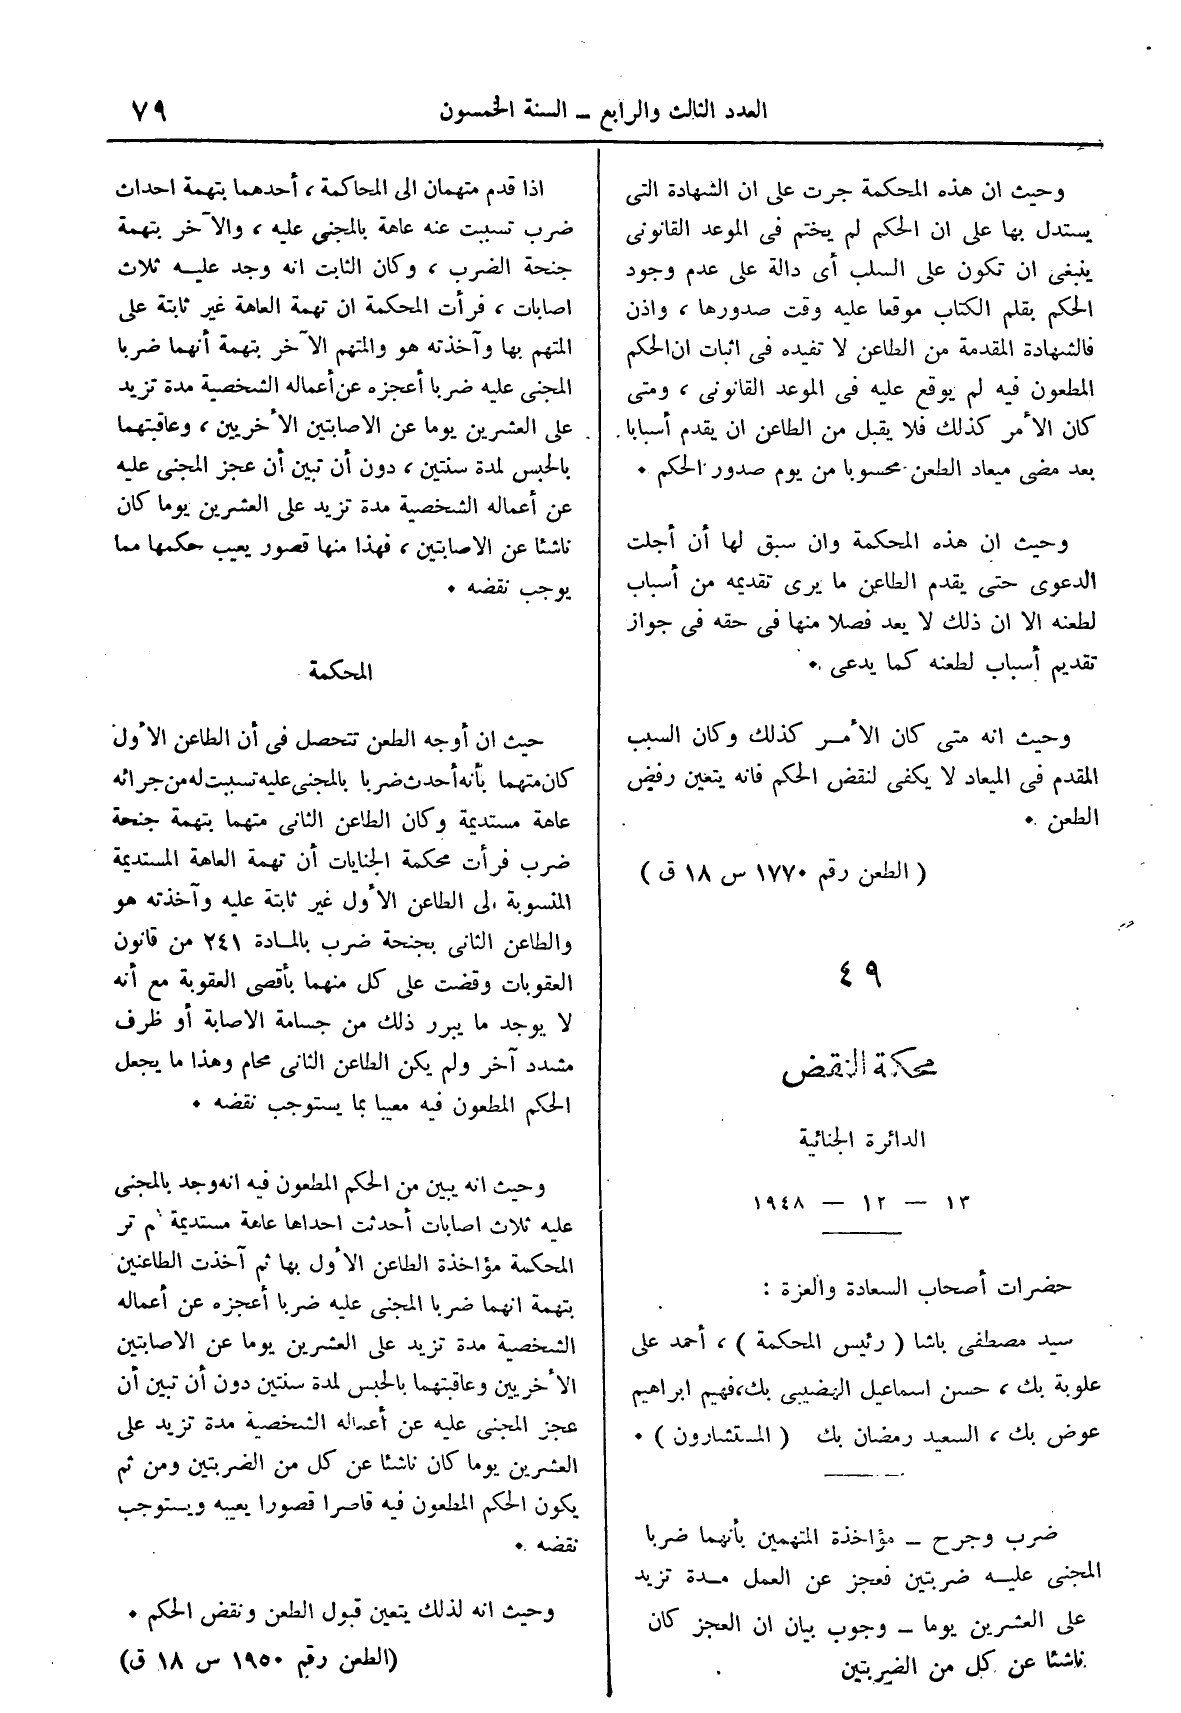 العدد الثالث والرابع – السنة الخمسون
٧٩
وحيث ان هذه المحكمة جرت على ان الشهادة التى
يستدل بها على ان الحكم لم يختم فى الموعد القانونى
ينبغى ان تكون على السلب أى دالة على عدم وجود
الحكم بقلم الكتاب موقعا عليه وقت صدورها ، واذن
فالشهادة المقدمة من الطاعن لا تفيده فى اثبات ان الحكم
المطعون فيه لم يوقع عليه فى الموعد القانونى ، ومتى
كان الأمر كذلك فلا يقبل من الطاعن ان يقدم أسبابا
بعد مضى ميعاد الطعن محسوبا من يوم صدور الحكم ٠
وحيث ان هذه المحكمة وان سبق لها أن أجلت
الدعوى حتى يقدم الطاعن ما يرى تقديمه من أسباب
لطعنه الا ان ذلك لا يعد فصلا منها فى حقه فى جواز
تقديم أسباب لطعنه كما يدعى ٠
وحيث انه متى كان الأمر كذلك وكان السبب
المقدم فى الميعاد لا يكفى لنقض الحكم فانه يتعين رفض
الطعن ٠
( الطعن رقم ١٧٧٠ س ١٨ ق )
٤٩
محكمة النقض
الدائرة الجنائية
١٣ – ١٢ – ١٩٤٨
حضرات أصحاب السعادة والعزة :
سيد مصطفى باشا ( رئيس المحكمة ) ، أحمد على
علوبة بك ، حسن اسماعيل الهضيبى بك، فهيم ابراهيم
عوض بك ، السعيد رمضان بك ( المستشارون ) ٠
ضرب وجرح – مؤاخذة المتهمين بأنهما ضربا
المجنى عليه ضربتين فعجز عن العمل مدة تزيد
على العشرين يوما – وجوب بيان ان العجز كان
ناشئا عن كل من الضربتين
اذا قدم متهمان الى المحاكمة ، أحدهما بتهمة احداث
ضرب تسببت عنه عاهة بالمجنى عليه ، والآخر بتهمة
جنحة الضرب ، وكان الثابت انه وجد عليه ثلاث
اصابات ، فرأت المحكمة ان تهمة العاهة غير ثابتة على
المتهم بها وآخذته هو والمتهم الآخر بتهمة أنهما ضربا
المجنى عليه ضربا أعجزه عن أعماله الشخصية مدة تزيد
على العشرين يوما عن الاصابتين الأخريين ، وعاقبتهما
بالحبس لمدة سنتين ، دون أن تبين أن عجز المجنى عليه
عن أعماله الشخصية مدة تزيد على العشرين يوما كان
ناشئا عن الاصابتين ، فهذا منها قصور يعيب حكمها مما
يوجب نقضه ٠
المحكمة
حيث ان أوجه الطعن تتحصل فى أن الطاعن الأول
كان متهما بأنه أحدث ضربا بالمجنى عليه تسببت له من جرائه
عاهة مستديمة وكان الطاعن الثانى متهما بتهمة جنحة
ضرب فرأت محكمة الجنايات أن تهمة العاهة المستديمة
المنسوبة الى الطاعن الأول غير ثابتة عليه وآخذته هو
والطاعن الثانى بجنحة ضرب بالمادة ٢٤١ من قانون
العقوبات وقضت على كل منهما بأقصى العقوبة مع أنه
لا يوجد ما يبرر ذلك من جسامة الاصابة أو ظرف
مشدد آخر ولم يكن الطاعن الثانى محام وهذا ما يجعل
الحكم المطعون فيه معيبا بما يستوجب نقضه ٠
وحيث انه يبين من الحكم المطعون فيه انه وجد بالمجنى
عليه ثلاث اصابات أحدثت احداها عاهة مستديمة لم تر
المحكمة مؤاخذة الطاعن الأول بها ثم آخذت الطاعنين
بتهمة انهما ضربا المجنى عليه ضربا أعجزه عن أعماله
الشخصية مدة تزيد على العشرين يوما عن الاصابتين
الأخريين وعاقبتهما بالحبس لمدة سنتين دون أن تبين أن
عجز المجنى عليه عن أعماله الشخصية مدة تزيد على
العشرين يوما كان ناشئا عن كل من الضربتين ومن ثم
يكون الحكم المطعون فيه قاصرا قصورا يعيبه ويستوجب
نقضه ٠
وحيث انه لذلك يتعين قبول الطعن ونقض الحكم ٠
(الطعن رقم ١٩٥٠ س ١٨ ق)